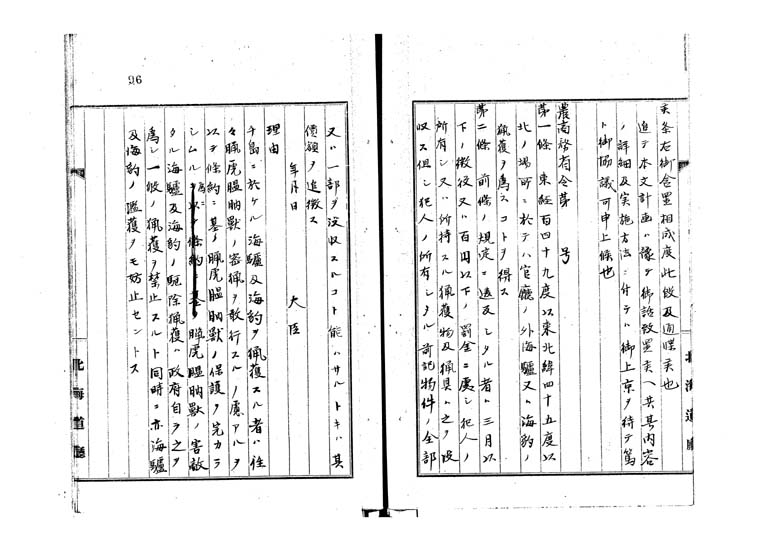 候条右御含置相成度此段及通牒候也
追テ本文計画ハ豫テ御話致置候ヘ共其内容
ノ詳細及実施方法ニ付テハ御上京ヲ待テ篤
ト御協議可申上候也
農商務省令第　号
第一條 東経百四十九度以東北緯四十五度以
北ノ場所ニ於テハ官廳ノ外海驢又ハ海豹ノ
猟獲ヲ為スコトヲ得ス
第二條 前條ノ規定ニ違反シタル者ハ三月以
下ノ懲役又ハ百円以下ノ罰金ニ處シ犯人ノ
所有シ又ハ所持スル猟獲物及猟具ハ之ヲ没
収ス但シ犯人ノ所有シタル前記物件ノ全部
北海道廳
26
又ハ一部ヲ没収スルコト能ハサルトキハ其
價額ヲ追徴ス
年月日
大臣
理由
千島ニ於ケル海驢及海豹ヲ猟獲スル者ハ往
々臘虎膃肭獣ノ密猟ヲ敢行スルノ虞アルヲ
以テ條約ニ基ク臘虎膃肭獣ノ保護ヲ完カラ
シムル為メ臘虎膃肭獣ノ害敵
タル海驢及海豹ノ駆除猟獲ハ政府自ラ之ヲ
為シ一般ノ猟獲ヲ禁止スルト同時ニ亦海驢
及海豹ノ濫獲ヲモ防止セントス
北海道廳